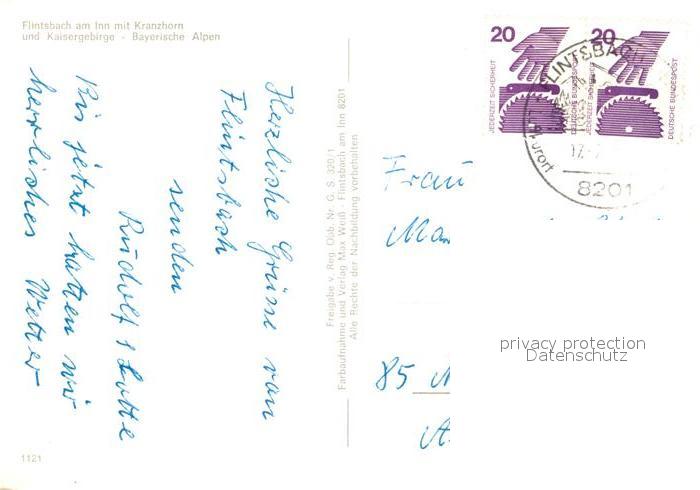 Flintsbach am Inn mit Kranzhorn
und Kaisergebirge - Bayerische Alpen
Herzliche Grüsse von
Flintsbach
senden
Rudolf & Lotte
Bis jetzt hatten wir
herrliches Wetter
Freigabe v. Reg. Obb. Nr. G. S. 320/1
Farbaufnahme und Verlag Max Weiß - Flintsbach am Inn 8201
Alle Rechte der Nachbildung vorbehalten
20
JEDERZEIT SICHERHEIT
DEUTSCHE BUNDESPOST
20
JEDERZEIT SICHERHEIT
DEUTSCHE BUNDESPOST
FLINTSBACH
Luftkurort
8201
Frau
85
privacy protection
Datenschutz
1121